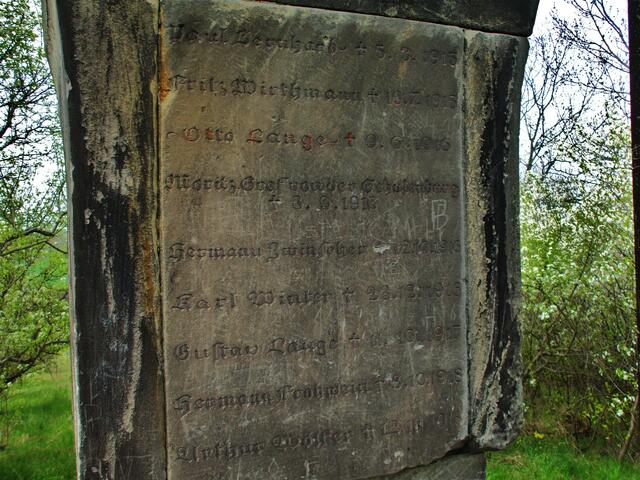 Paul Bernhardt † 5. 3. 1915
Fritz Wirthmann † 19.7. 1915
Otto Lange † 9. 6. 1916
Moritz Graf von der Schulenburg
† 3. 9. 1916
Hermann Zwinscher † 12.10.1916
Karl Winter † 23.12.
Gustav Lange † 10. 1917
Hermann Frohwein † 8.10.1918
Arthur †